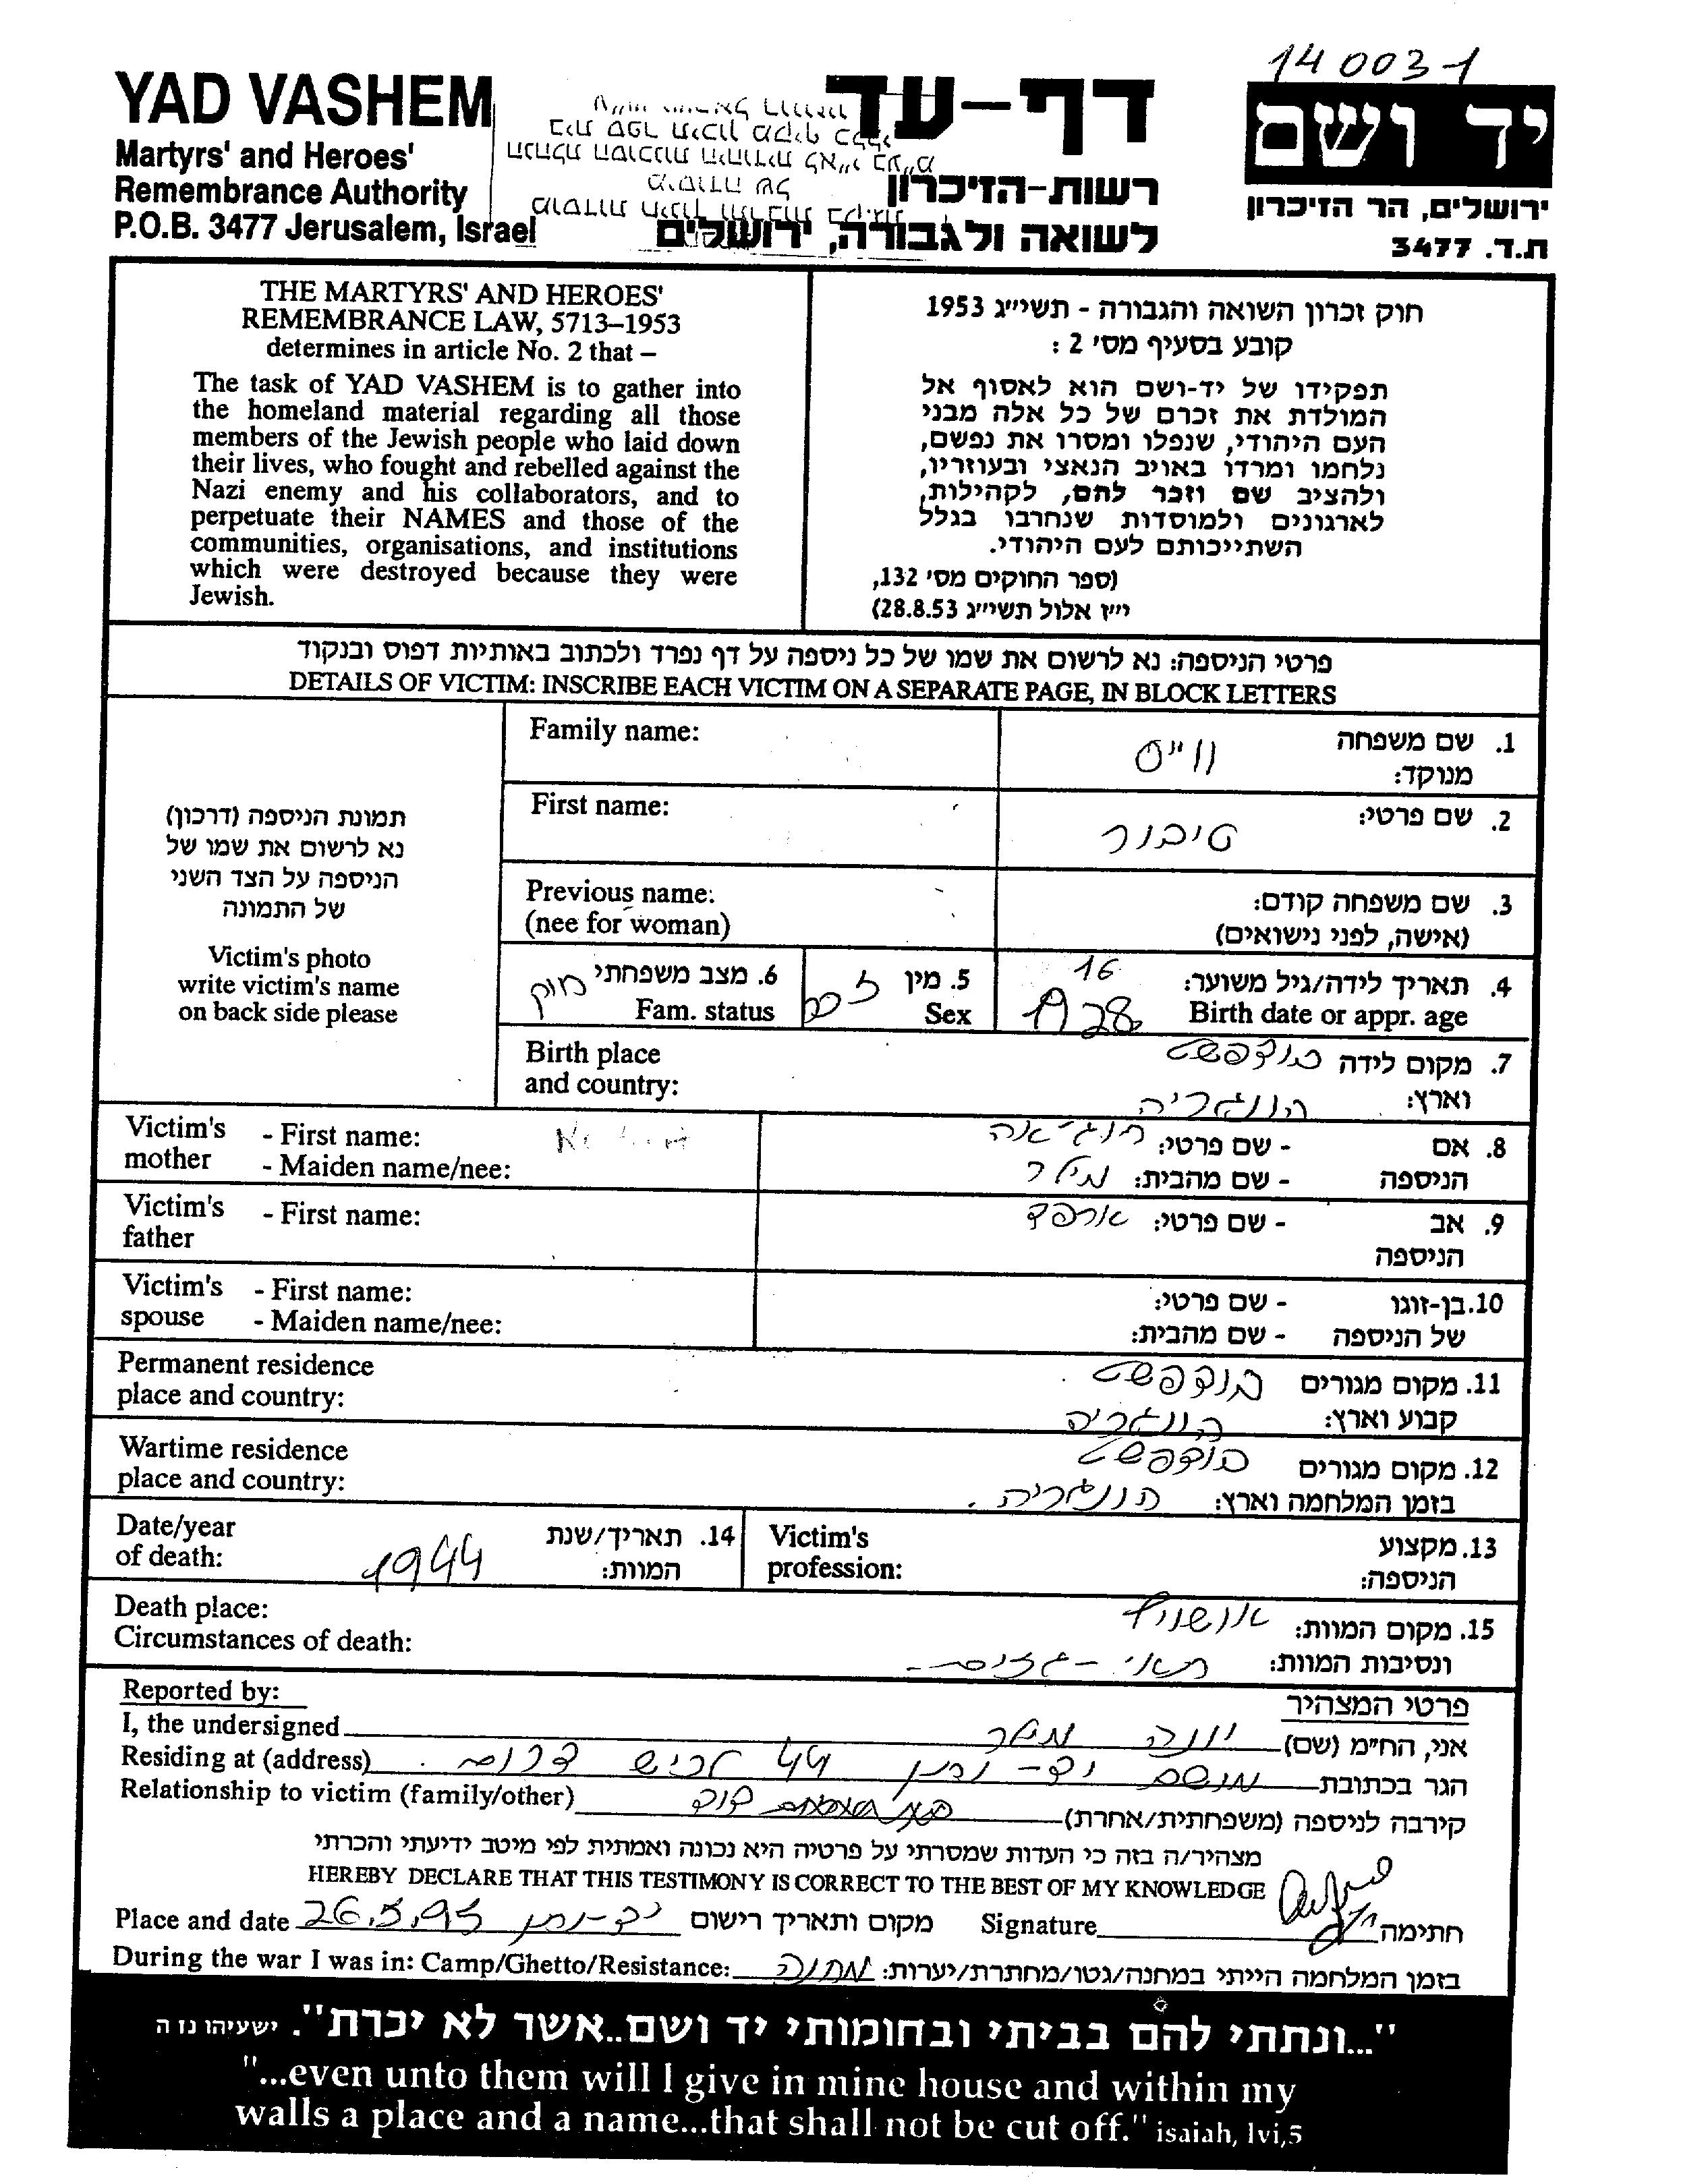 140031
YAD VASHEM
Martyrs' and Heroes'
Remembrance Authority
P.O.B. 3477 Jerusalem, Israel
דף-עד
רשות-הזיכרון
לשואה ולגבורה, ירושלים
יד ושם
ירושלים, הר הזיכרון
ת.ד. 3477
THE MARTYRS' AND HEROES'
REMEMBRANCE LAW, 5713–1953
determines in article No. 2 that –
The task of YAD VASHEM is to gather into
the homeland material regarding all those
members of the Jewish people who laid down
their lives, who fought and rebelled against the
Nazi enemy and his collaborators, and to
perpetuate their NAMES and those of the
communities, organisations, and institutions
which were destroyed because they were
Jewish.
חוק זכרון השואה והגבורה - תשי״ג 1953
קובע בסעיף מס׳ 2 :
תפקידו של יד-ושם הוא לאסוף אל
המולדת את זכרם של כל אלה מבני
העם היהודי, שנפלו ומסרו את נפשם,
נלחמו ומרדו באויב הנאצי ובעוזריו,
ולהציב שם וזכר להם, לקהילות,
לארגונים ולמוסדות שנחרבו בגלל
השתייכותם לעם היהודי.
(ספר החוקים מס׳ 132,
י״ז אלול תשי״ג 28.8.53)
פרטי הניספה: נא לרשום את שמו של כל ניספה על דף נפרד ולכתוב באותיות דפוס ובנקוד
DETAILS OF VICTIM: INSCRIBE EACH VICTIM ON A SEPARATE PAGE, IN BLOCK LETTERS
תמונת הניספה (דרכון)
נא לרשום את שמו של
הניספה על הצד השני
של התמונה
Victim's photo
write victim's name
on back side please
Family name:
1. שם משפחה
מנוקד:
ווייס
First name:
2. שם פרטי:
טיבור
Previous name:
(nee for woman)
3. שם משפחה קודם:
(אישה, לפני נישואים)
4. תאריך לידה/גיל משוער: 16
Birth date or appr. age 1928
5. מין זכר
Sex
6. מצב משפחתי רווק
Fam. status
Birth place
and country:
7. מקום לידה בודפשט
וארץ: הונגריה
Victim's mother
- First name:
- Maiden name/nee:
8. אם הניספה
- שם פרטי:
- שם מהבית: מילר
Victim's father
- First name:
9. אב הניספה
- שם פרטי: ארפד
Victim's spouse
- First name:
- Maiden name/nee:
10. בן-זוגו של הניספה
- שם פרטי:
- שם מהבית:
Permanent residence
place and country:
11. מקום מגורים בודפשט
קבוע וארץ: הונגריה
Wartime residence
place and country:
12. מקום מגורים בודפשט
בזמן המלחמה וארץ: הונגריה.
Date/year
of death:
14. תאריך/שנת
המוות: 1944
Victim's
profession:
13. מקצוע
הניספה:
Death place:
Circumstances of death:
15. מקום המוות: אושוויץ
ונסיבות המוות: תאי-גזים-
Reported by:
פרטי המצהיר
I, the undersigned
אני, הח״מ (שם) יונה מילר
Residing at (address)
הגר בכתובת מושב יד-נתן 44 לכיש דרום.
Relationship to victim (family/other)
קירבה לניספה (משפחתית/אחרת) דוד
מצהיר/ה בזה כי העדות שמסרתי על פרטיה היא נכונה ואמתית לפי מיטב ידיעתי והכרתי
HEREBY DECLARE THAT THIS TESTIMONY IS CORRECT TO THE BEST OF MY KNOWLEDGE
Place and date 26.5.95 יד-נתן מקום ותאריך רישום
Signature חתימה
During the war I was in: Camp/Ghetto/Resistance: מחנה בזמן המלחמה הייתי במחנה/גטו/מחתרת/יערות:
"...ונתתי להם בביתי ובחומותי יד ושם..אשר לא יכרת". ישעיהו נז ה
"...even unto them will I give in mine house and within my
walls a place and a name...that shall not be cut off." isaiah, lvi,5